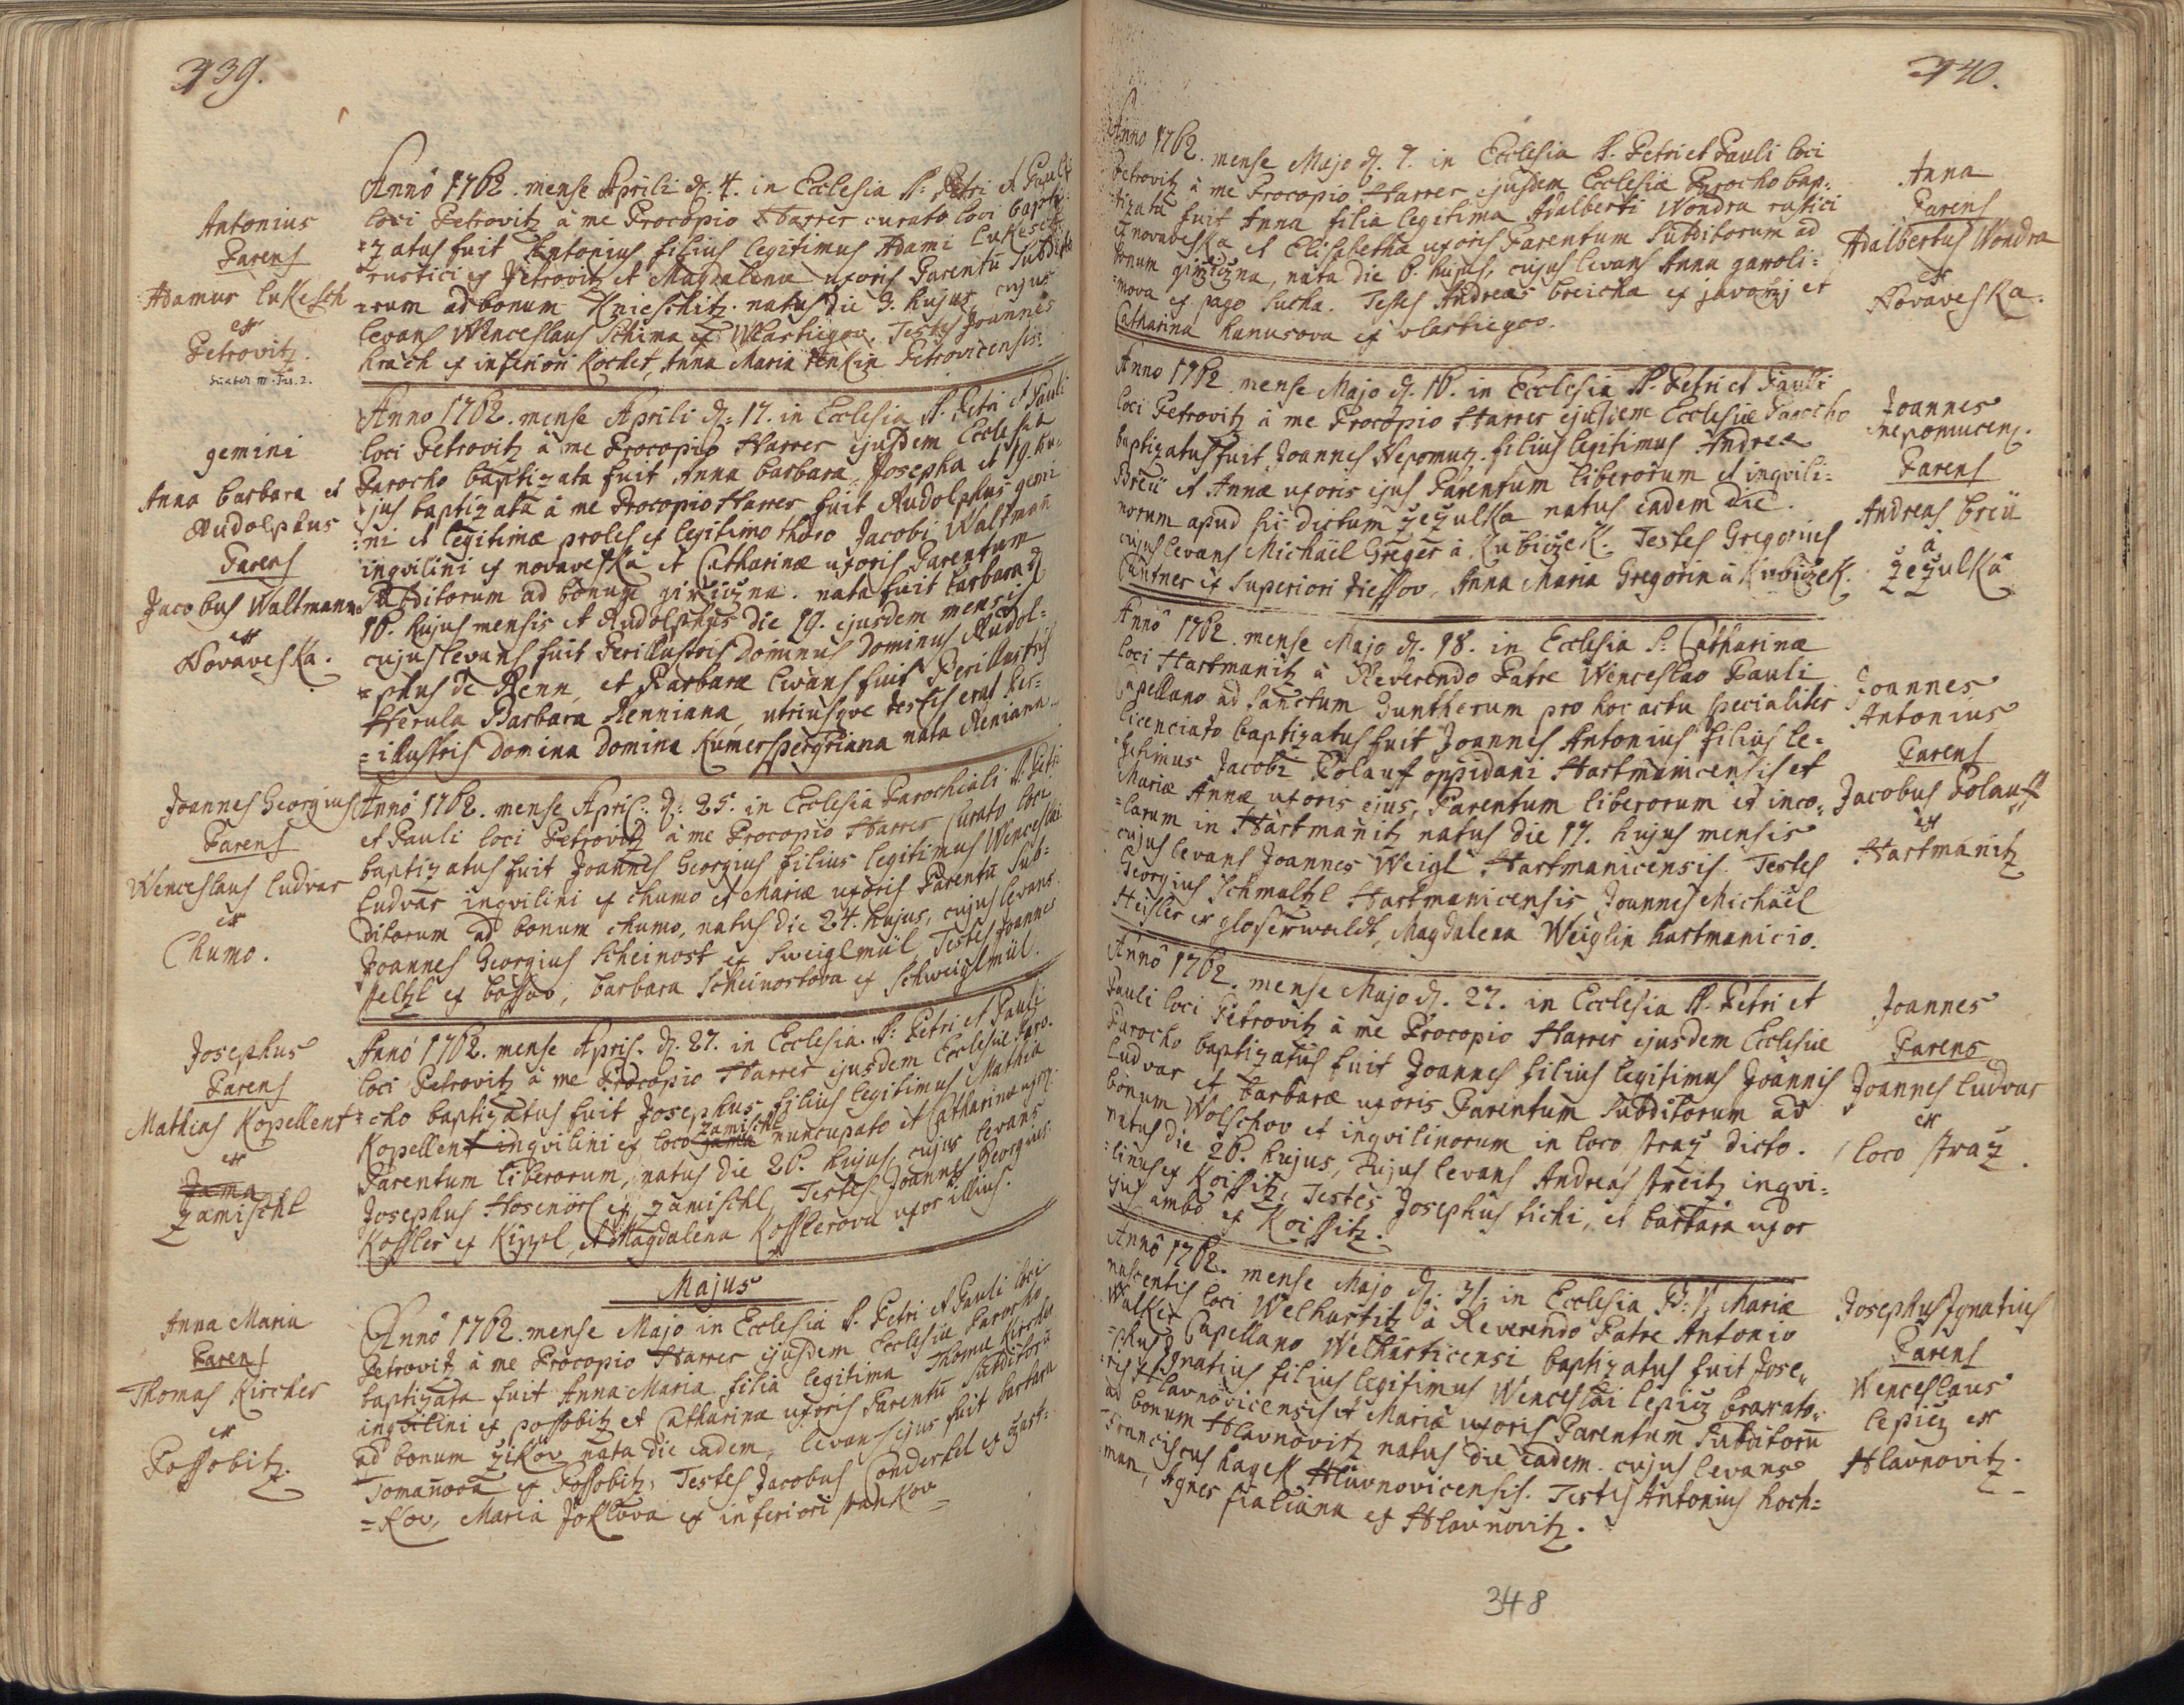 739.
Antonius
Parens
Adamus Lukesch
ex
Petrovitz.
Anno 1762. mense Aprili d. 4. in Ecclesia S: Petri et Pauli
loci Petrovitz à me Procopio Harrer curato loci bapti-
=zatus fuit Antonius filius legitimus Adami Lukesch
rustici ex Petrovitz et Magdalena uxoris Parentu Subdito
=rum ad bonum Knieschitz. natus die 3. hujus, cujus
levans Wenceslaus Schima ex Wlastiegov. Testes Joannes
Krach ex inferiori Kochet, Anna Maria Penkin Petrovicensis.
gemini
Anna Barbara et
Rudolphus
Parens
Jacobus Waltmann
ex
Novaveska.
Anno 1762. mense Aprili d: 17. in Ecclesia S. Petri et Pauli
loci Petrovitz à me Procopio Harrer ejusdem Ecclesiæ
Parocho baptizata fuit Anna Barbara Josepha et 19. hu=
jus baptizatu à me Procopio Harrer fuit Rudolphus gemi
=ni et legitimæ proles ex legitimo thoro Jacobi Waltman
inqvilini ex novaveska et Catharinæ uxoris Parentum
Subditorum ad bonum gicziczna. nata fuit Barbara d
16. hujus mensis et Rudolphus die 19. ejusdem mensis
cujus levans fuit Perillustris Dominus Dominus Rudol=
=phus de Renn, et Barbaræ levans fuit Perillustris
Herula Barbara Renniana, utriusqve testis erat Per=
=illustris Domina Domina Kumerspergriana nata Reniana.
Joannes Georgius
Parens
Wenceslaus Ludvar
ex
Chumo.
Anno 1762. mense April: d: 25. in Ecclesia Parochiali S. Petri
et Pauli loci Petrovitz à me Procopio Harrer Curato loci
baptizatus fuit Joannes Georgius filius legitimus Wenceslai
Ludvar inqvilini ex Chumo et Mariæ uxoris Parentu Sub=
ditorum ad bonum Chumo, natus die 24. hujus, cujus levans
Joannes Georgius Scheinost ex Sweiglmül Testes Joannes
Peltzl ex Bossov, Barbara Scheinostova ex Schweiglmül.
Josephus
Parens
Mathias Kopellent
ex
Jama
Zamischl
Anno 1762. mense April. d. 27. in Ecclesia. S: Petri et Pauli
loci Petrovitz à me Procopio Harrer ejusdem Ecclesiæ Paro.
=cho baptizatus fuit Josephus filius legitimus Mathia
Kopellent inqvilini ex loco jama Zamischl nuncupato et Catharinæ uxor.
Parentum liberorum, natus die 26. hujus, cujus levans
Josephus Hosenörl ex Zamischl, Testes Joannes Georgius
Kossler ex Kippl, et Magdalena Kosslerova uxor illius.
Majus
Anna Maria
Parens
Thomas Kircher
ex
Possobitz.
Anno 1762. mense Majo in Ecclesia S. Petri et Pauli loci
Petrovitz à me Procopio Harrer ejusdem Ecclesiæ Parocho
baptizata fuit Anna Maria filia legitima Thomæ Kircher
inqvilini ex possobitz et Catharina uxoris Parentu Subditoru
ad bonum Zikov nata die eadem, levans ejus fuit Barbara
Tomanova ex Possobitz, Testes Jacobus Conderhel ex Czast=
=kov, Maria Joklova ex inferiori stankov=
740.
Anno 1762. mense Majo d. 7. in Ecclesia S. Petri et Pauli loci
Petrovitz à me Procopio Harrer ejusdem Ecclesiæ Parocho bap=
=tizata fuit Anna filia legitima Adalberti Wondra rustici
ex novaveska et Elisabetha uxoris Parentum Subditorum ad
bonum giziczna, nata die 6. hujus, cujus levans Anna garoli=
=mova ex pago Sucha. Testes Andreas Breicha ex javorzj et
Catharina Hanusova ex vlastiegov.
Anna
Parens
Adalbertus Wondra
ex
Novaveska.
Anno 1762 mense Majo d. 16. in Ecclesia S. Petri et Pauli
loci Petrovitz à me Procopio Harrer ejusdem Ecclesiæ Parocho
baptizatus fuit Joannes Nepomuz. filius legitimus Andreæ
Breü et Annæ uxoris ejus Parentum liberorum et inqvili=
norum apud sic dictum Zezulka natus eadem die.
cujus levans Michäel Greger à Kubiczek. Testes Gregorius
Cautner ex Superiori tiessov, Anna Maria Gregorin à Kubiczek.
Joannes
nepomucen.
Parens
Andreas Breü
à
Zezulka
Anno 1762 mense Majo d. 18. in Ecclesia S: Catharinæ
loci Hartmanitz à Reverendo Patre Wenceslao Pauli
Capellano ad Sanctum Guntherum pro hoc actu specialiter
licenciato baptizatus fuit Joannes Antonius filius le=
=gitimus Jacobi Polauf oppidani Hartmanicensis et
Mariæ Annæ uxoris ejus, Parentum liberorum et inco=
=larum in Hartmanitz natus die 17. hujus mensis
cujus levans Joannes Weigl Hartmanicensis. Testes
Georgius Schmaltzl Hartmanicensis Joannes Michäel
Heisler ex gloserwaldt, Magdalena Weiglin hartmanicio.
Joannes
Antonius
Parens
Jacobus Polauff
ex
Hartmanitz
Anno 1762. mense Majo d. 27. in Ecclesia S. Petri et
Pauli loci Petrovitz à me Procopio Harrer ejusdem Ecclesiæ
Parocho baptizatus fuit Joannes filius legitimus Joannis
Ludvar et Barbaræ uxoris Parentum Subditorum ad
bonum Wolschov et inqvilinorum in loco straz dicto.
natus die 26. hujus, cujus levans Andreas streitz inqvi=
=linus ex Koissitz, Testes Josephus tichi, et Barbara uxor
ejus ambo ex Koissitz.
Joannes
Parens
Joannes Ludvar
ex
loco straz.
Anno 1762. mense Majo d. 31. in Ecclesia B: V. Mariæ
nascentis loci Welhartitz à Reverendo Patre Antonio
Walker Capellano Welharticensi baptizatus fuit Jose=
=phus Ignatius filius legitimus Wenceslai lepicz braxato=
=ris Hlavnovicensis et Mariæ uxoris Parentum Subditoru
ad bonum Hlavnovitz natus die eadem. cujus levans
Franciscus hagek Hlavnovicensis. Testes Antonius hoch=
=man, Agnes fialiana ex Hlavnovitz.
Josephus Ignatius
Parens
Wenceslaus
lepicz ex
Hlavnovitz.
348